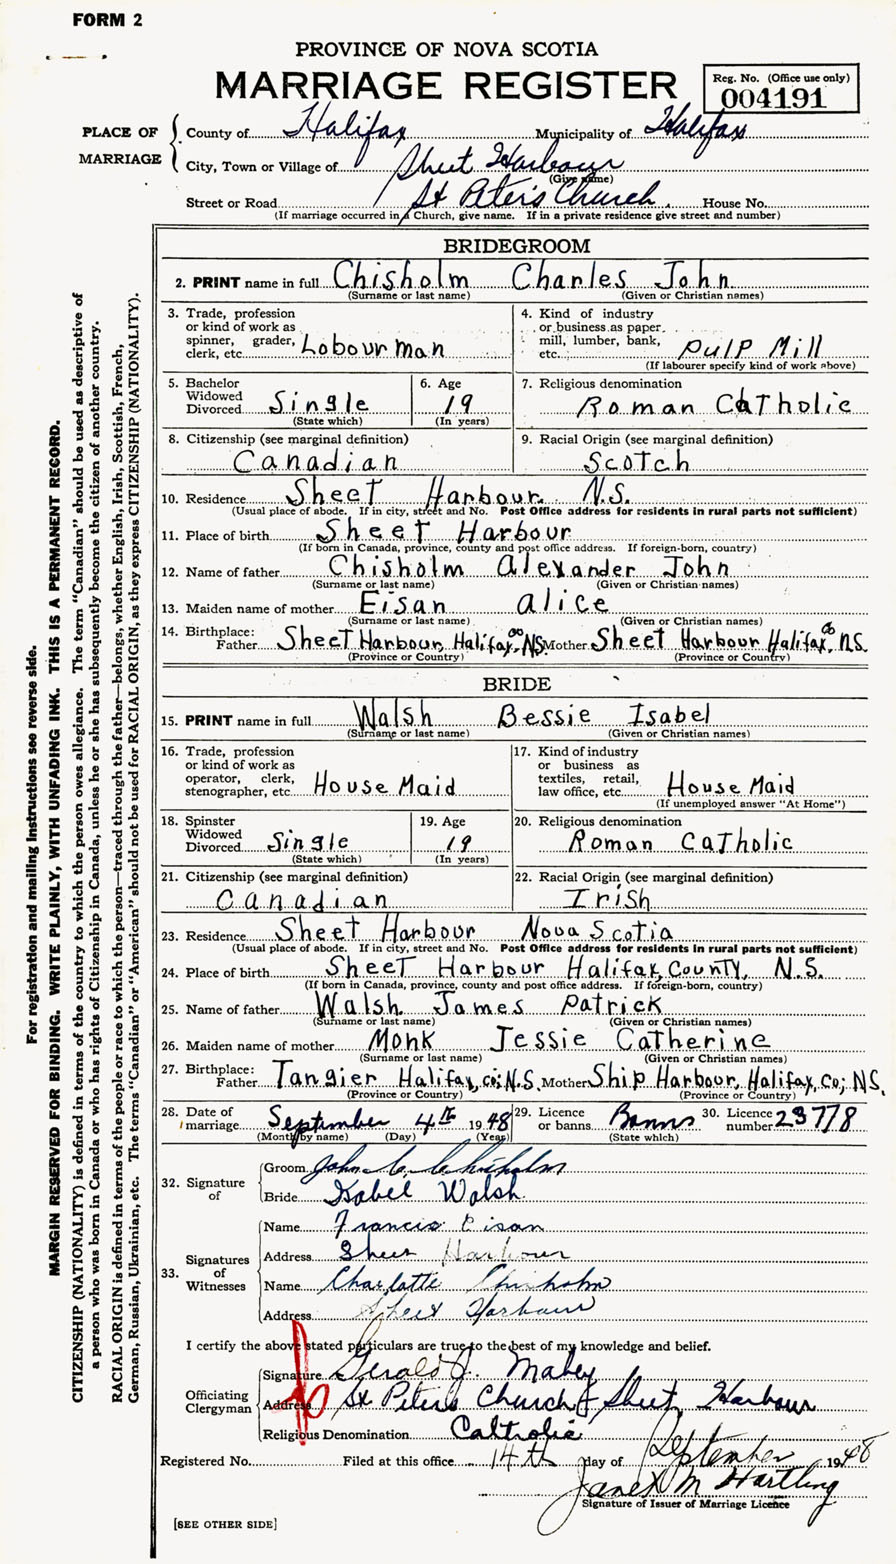 FORM 2
PROVINCE OF NOVA SCOTIA
MARRIAGE REGISTER
Reg. No. (Office use only)
004191
PLACE OF MARRIAGE
County of Halifax Municipality of Halifax
City, Town or Village of Sheet Harbour
(Give name)
Street or Road St Peter's Church. House No.
(If marriage occurred in a Church, give name. If in a private residence give street and number)
BRIDEGROOM
2. PRINT name in full Chisholm Charles John
(Surname or last name) (Given or Christian names)
3. Trade, profession
or kind of work as
spinner, grader,
clerk, etc. Labour man
4. Kind of industry
or business as paper
mill, lumber, bank,
etc. Pulp Mill
(If labourer specify kind of work above)
5. Bachelor
Widowed
Divorced Single
(State which)
6. Age
19
(In years)
7. Religious denomination
Roman Catholic
8. Citizenship (see marginal definition)
Canadian
9. Racial Origin (see marginal definition)
Scotch
10. Residence Sheet Harbour N.S.
(Usual place of abode. If in city, street and No. Post Office address for residents in rural parts not sufficient)
11. Place of birth Sheet Harbour
(If born in Canada, province, county and post office address. If foreign-born, country)
12. Name of father Chisholm Alexander John
(Surname or last name) (Given or Christian names)
13. Maiden name of mother Eisan Alice
(Surname or last name) (Given or Christian names)
14. Birthplace:
Father Sheet Harbour, Halifax, Co NS. Mother Sheet Harbour Halifax, Co N.S.
(Province or Country) (Province or Country)
BRIDE
15. PRINT name in full Walsh Bessie Isabel
(Surname or last name) (Given or Christian names)
16. Trade, profession
or kind of work as
operator, clerk,
stenographer, etc. House Maid
17. Kind of industry
or business as
textiles, retail,
law office, etc. House Maid
(If unemployed answer "At Home")
18. Spinster
Widowed
Divorced Single
(State which)
19. Age
19
(In years)
20. Religious denomination
Roman Catholic
21. Citizenship (see marginal definition)
Canadian
22. Racial Origin (see marginal definition)
Irish
23. Residence Sheet Harbour Nova Scotia
(Usual place of abode. If in city, street and No. Post Office address for residents in rural parts not sufficient)
24. Place of birth Sheet Harbour Halifax, County, N.S.
(If born in Canada, province, county and post office address. If foreign-born, country)
25. Name of father Walsh James Patrick
(Surname or last name) (Given or Christian names)
26. Maiden name of mother Monk Jessie Catherine
(Surname or last name) (Given or Christian names)
27. Birthplace:
Father Tangier Halifax, co; N.S. Mother Ship Harbour, Halifax, Co; NS.
(Province or Country) (Province or Country)
28. Date of
marriage September 4th 1948
(Month by name) (Day) (Year)
29. Licence
or banns Banns
(State which)
30. Licence
number 23778
32. Signature of
Groom John C. Chisholm
Bride Isabel Walsh
33. Signatures of Witnesses
Name Francis Eisan
Address Sheet Harbour
Name Charlotte Chisholm
Address Sheet Harbour
I certify the above stated particulars are true to the best of my knowledge and belief.
Officiating Clergyman
Signature Gerald J. Mabey
Address St Peter's Church Sheet Harbour
Religious Denomination Catholic
Registered No. Filed at this office 14th day of September 1948
Janet M Hartling
Signature of Issuer of Marriage Licence
[SEE OTHER SIDE]
For registration and mailing instructions see reverse side.
MARGIN RESERVED FOR BINDING. WRITE PLAINLY, WITH UNFADING INK. THIS IS A PERMANENT RECORD.
CITIZENSHIP (NATIONALITY) is defined in terms of the country to which the person owes allegiance. The term "Canadian" should be used as descriptive of
a person who was born in Canada or who has rights of Citizenship in Canada, unless he or she has subsequently become the citizen of another country.
RACIAL ORIGIN is defined in terms of the people or race to which the person—traced through the father—belongs, whether English, Irish, Scottish, French,
German, Russian, Ukrainian, etc. The terms "Canadian" or "American" should not be used for RACIAL ORIGIN, as they express CITIZENSHIP (NATIONALITY).